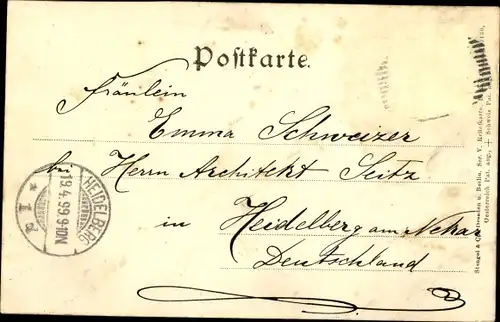 Postkarte.
Fräulein
Emma Schweizer
bei Herrn Architekt Seitz
in Heidelberg am Nekar
Deutschland
HEIDELBERG
19.4.99.9-10N
* 1 *
Stengel & Dresden u. Berlin. Ser. V. Reliefkarte.
Oesterreich Pat. ang. + Schweiz Pat.